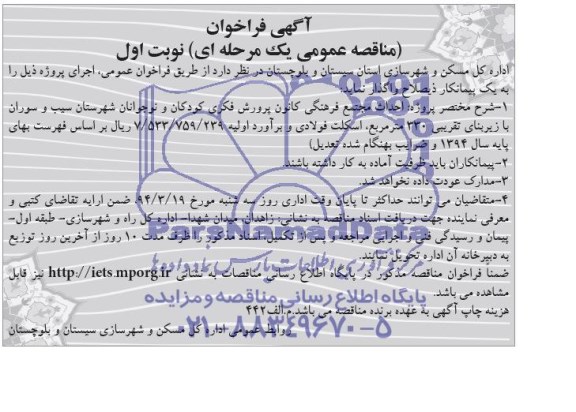 آگهی فراخوان
(مناقصه عمومی یک مرحله ای) نوبت اول
اداره کل مسکن و شهرسازی استان سیستان و بلوچستان در نظر دارد از طریق فراخوان عمومی، اجرای پروژه ذیل را
به یک پیمانکار ذیصلاح واگذار نماید:
۱-شرح مختصر پروژه: احداث مجتمع فرهنگی کانون پرورش فکری کودکان و نوجوانان شهرستان سیب و سوران
با زیربنای تقریبی ۳۳۰ مترمربع، اسکلت فولادی و برآورد اولیه ۷/۵۳۳/۷۵۹/۲۳۹ ریال بر اساس فهرست بهای
پایه سال ۱۳۹۴ و ضرایب بهنگام شده تعدیل)
۲-پیمانکاران باید ظرفیت آماده به کار داشته باشند.
۳-مدارک عودت داده نخواهد شد.
۴-متقاضیان می توانند حداکثر تا پایان وقت اداری روز سه شنبه مورخ ۹۴/۳/۱۹، ضمن ارایه تقاضای کتبی و
معرفی نماینده جهت دریافت اسناد مناقصه به نشانی: زاهدان، میدان شهدا- اداره کل راه و شهرسازی- طبقه اول-
پیمان و رسیدگی فنی و اجرایی مراجعه و پس از تکمیل، اسناد مذکور را ظرف مدت ۱۰ روز از آخرین روز توزیع
به دبیرخانه آن اداره تحویل نمایند.
ضمنا فراخوان مناقصه مذکور در پایگاه اطلاع رسانی مناقصات به نشانی http://iets.mporg.ir نیز قابل
مشاهده می باشد.
هزینه چاپ آگهی به عهده برنده مناقصه می باشد.م.الف۴۴۲
روابط عمومی اداره کل مسکن و شهرسازی سیستان و بلوچستان
ParsNamadData
فن آوری اطلاعات پارس نماد داده ها
پایگاه اطلاع رسانی مناقصه و مزایده
۰۲۱-۸۸۳۴۹۶۷۰-۵